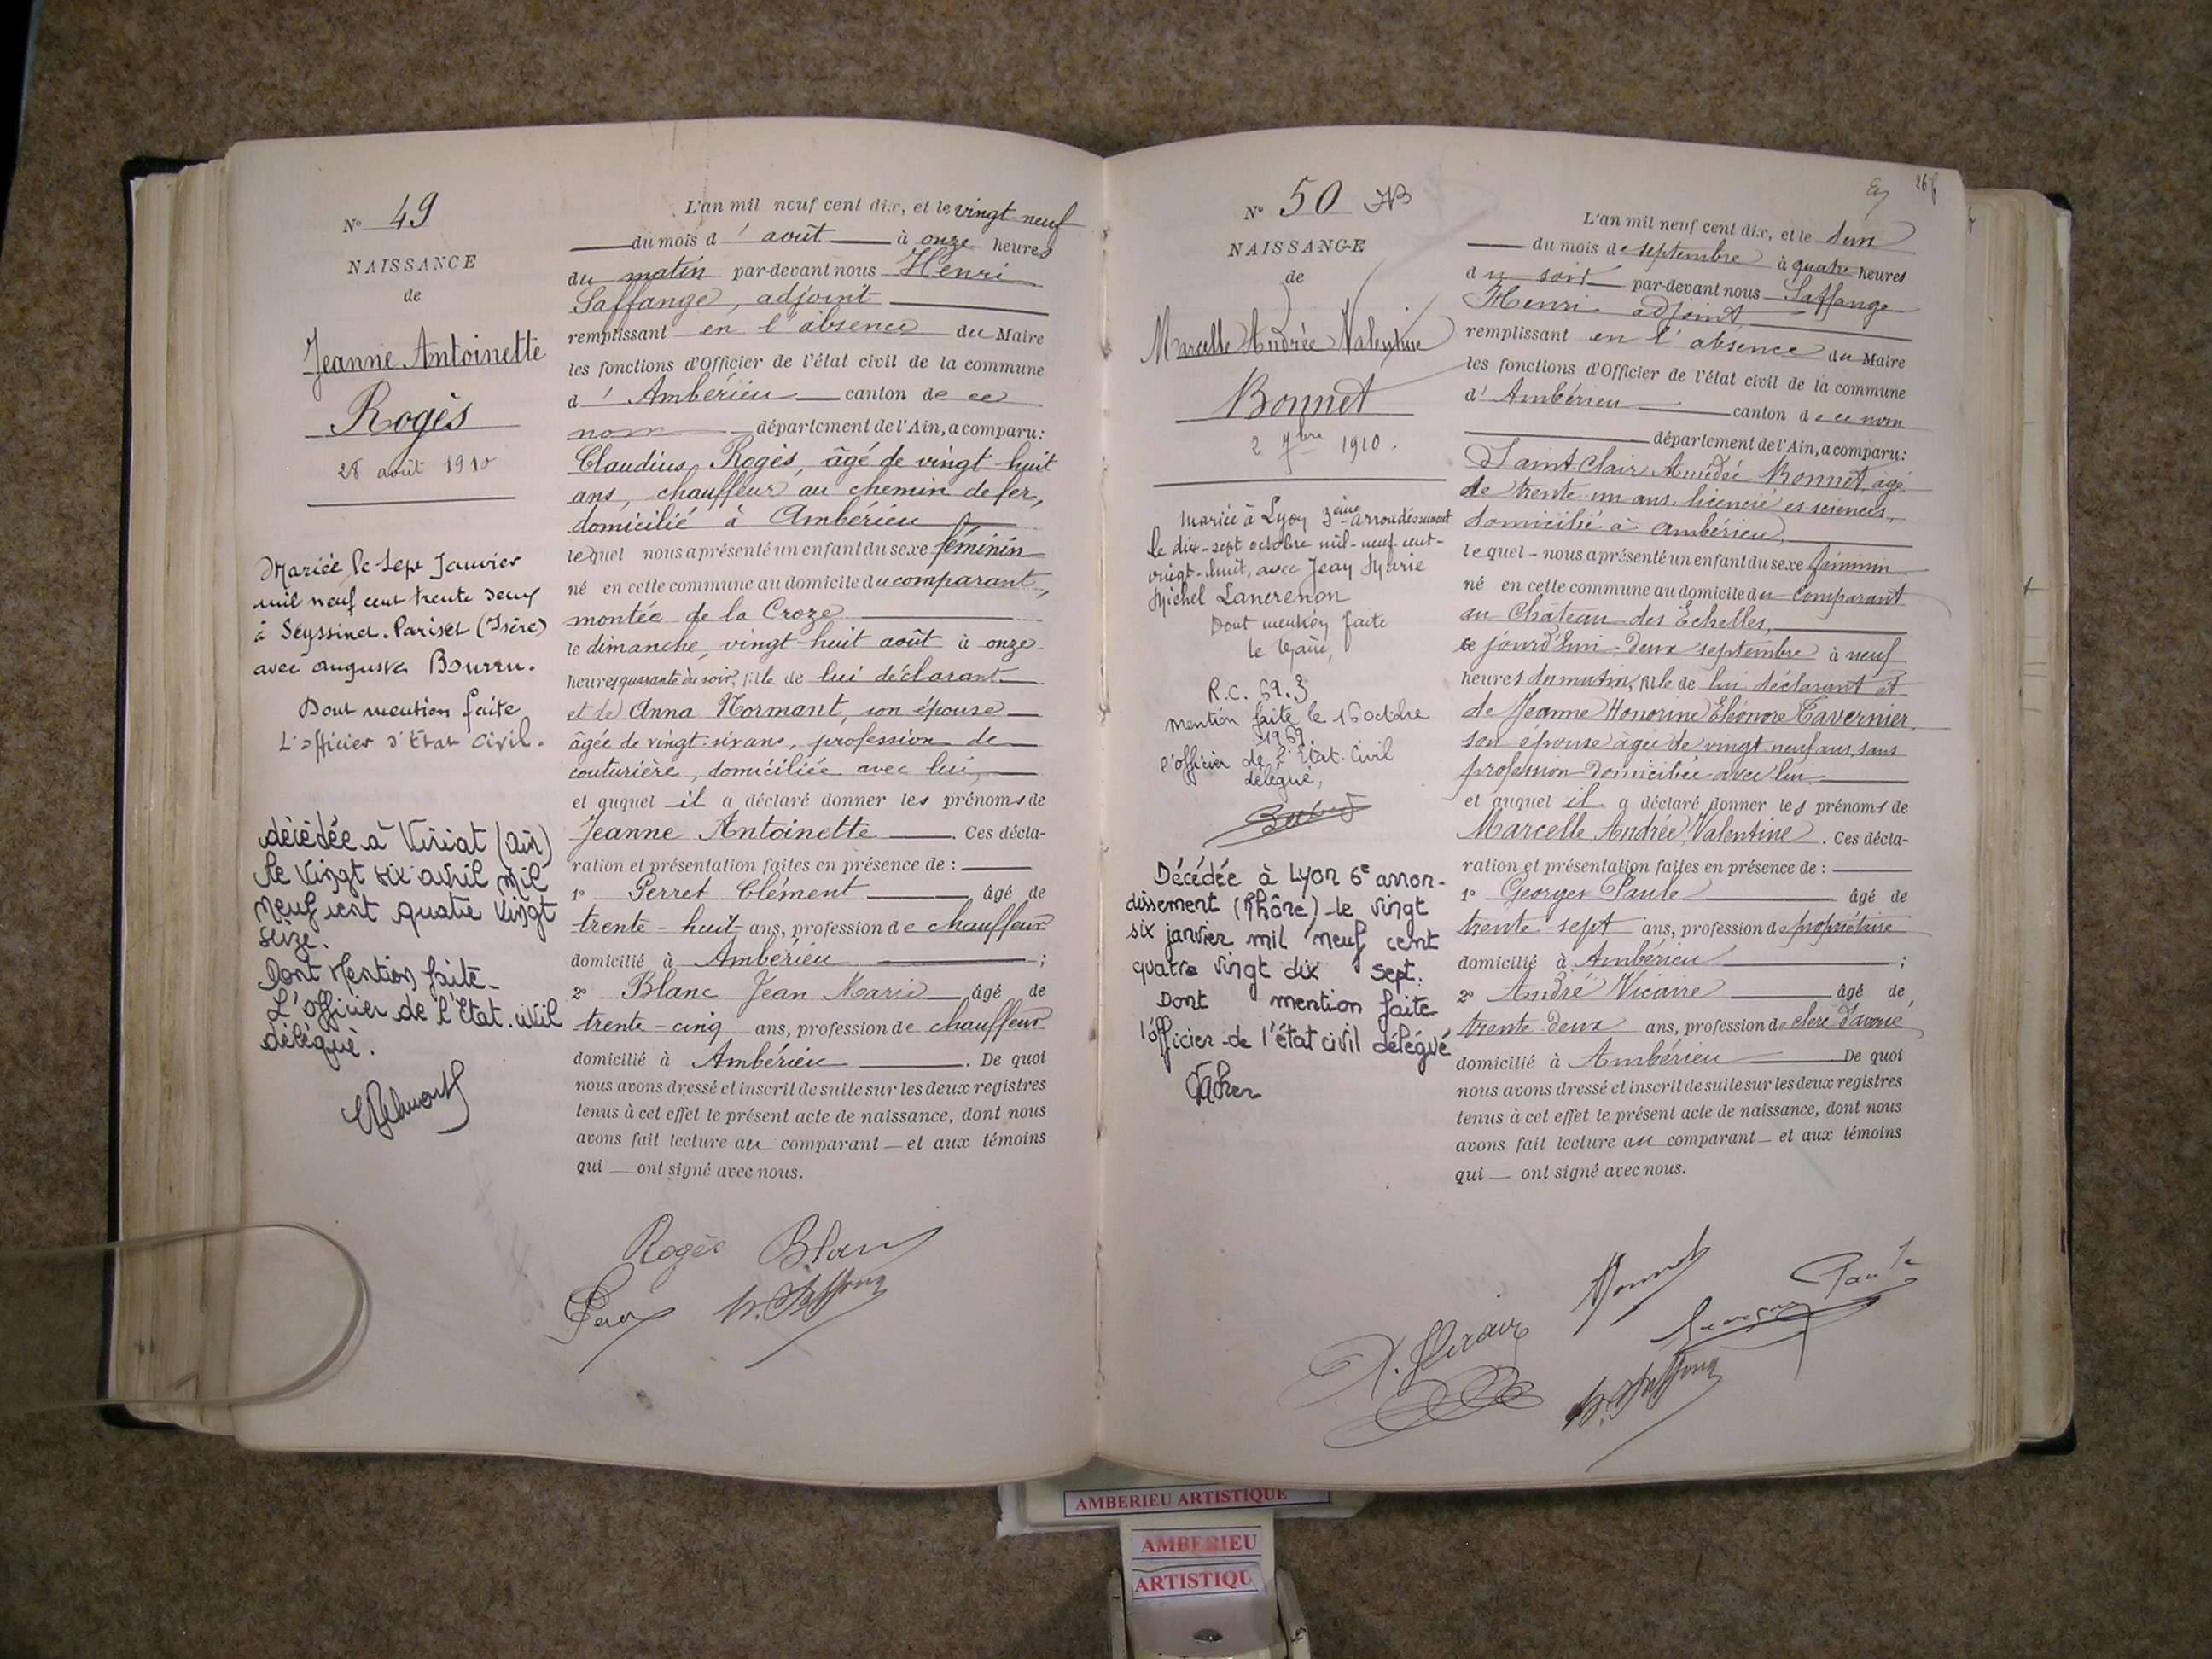 N° 49
NAISSANCE
de
Jeanne Antoinette
Rogès
28 août 1910
Mariée le sept Janvier
mil neuf cent trente deux
à Seyssinet-Pariset (Isère)
avec Auguste
Dont mention faite
L'officier d'Etat Civil.
décédée à Viriat (Ain)
le vingt six avril mil
neuf cent quatre vingt
seize.
Dont Mention faite
L'officier de l'Etat civil
délégué.
L'an mil neuf cent dix, et le vingt-neuf
du mois d'août à onze heures
du matin par-devant nous Henri
Saffange, adjoint
remplissant en l'absence du Maire
les fonctions d'Officier de l'état civil de la commune
d'Ambérieu canton de ce
nom département de l'Ain, a comparu:
Claudius Rogès, âgé de vingt-huit
ans, chauffeur au chemin de fer,
domicilié à Ambérieu
lequel nous a présenté un enfant du sexe féminin
né en cette commune au domicile du comparant,
montée de la Croze
le dimanche, vingt-huit août à onze
heures quarante du soir, fille de lui déclarant
et de Anna Normant, son épouse
âgée de vingt-six ans, profession de
couturière, domiciliée avec lui,
et auquel il a déclaré donner les prénoms de
Jeanne Antoinette. Ces décla-
ration et présentation faites en présence de :
1° Perret Clément âgé de
trente-huit ans, profession de chauffeur
domicilié à Ambérieu ;
2° Blanc Jean Marie âgé de
trente-cinq ans, profession de chauffeur
domicilié à Ambérieu. De quoi
nous avons dressé et inscrit de suite sur les deux registres
tenus à cet effet le présent acte de naissance, dont nous
avons fait lecture au comparant et aux témoins
qui ont signé avec nous.
Rogès Blanc
N° 50
NAISSANCE
de
Marcelle Andrée Valentine
Bonnet
2 7bre 1910.
Mariée à Lyon 3eme arrondissement
le dix-sept octobre mil-neuf-cent-
vingt-huit, avec Jean Marie
Michel Lancrenon
Dont mention faite
le Maire,
R.C. 69.3
mention faite le 16 octobre
1969
l'officier de l'Etat-Civil
délégué,
Décédée à Lyon 6e arron-
dissement (Rhône) le vingt
six janvier mil neuf cent
quatre vingt dix sept.
Dont mention faite
l'officier de l'état civil délégué
L'an mil neuf cent dix, et le deux
du mois de septembre à quatre heures
du soir par-devant nous Saffange
Henri adjoint
remplissant en l'absence du Maire
les fonctions d'Officier de l'état civil de la commune
d'Ambérieu canton de ce nom
département de l'Ain, a comparu:
Saint-Clair Amédée Bonnet, âgé
de trente-un ans, licencié ès-sciences,
domicilié à Ambérieu
lequel nous a présenté un enfant du sexe féminin
né en cette commune au domicile du comparant
au Château des Echelles,
ce jourd'hui deux septembre à neuf
heures du matin, fille de lui déclarant et
de Jeanne Honorine Eléonore Tavernier
son épouse âgée de vingt neuf ans, sans
profession domiciliée avec lui
et auquel il a déclaré donner les prénoms de
Marcelle Andrée Valentine. Ces décla-
ration et présentation faites en présence de :
1° Georges Paule âgé de
trente-sept ans, profession de propriétaire
domicilié à Ambérieu ;
2° André Vicaire âgé de
trente deux ans, profession de clerc d'avoué
domicilié à Ambérieu De quoi
nous avons dressé et inscrit de suite sur les deux registres
tenus à cet effet le présent acte de naissance, dont nous
avons fait lecture au comparant et aux témoins
qui ont signé avec nous.
Bonnet
AMBERIEU ARTISTIQUE
AMBERIEU
ARTISTIQU